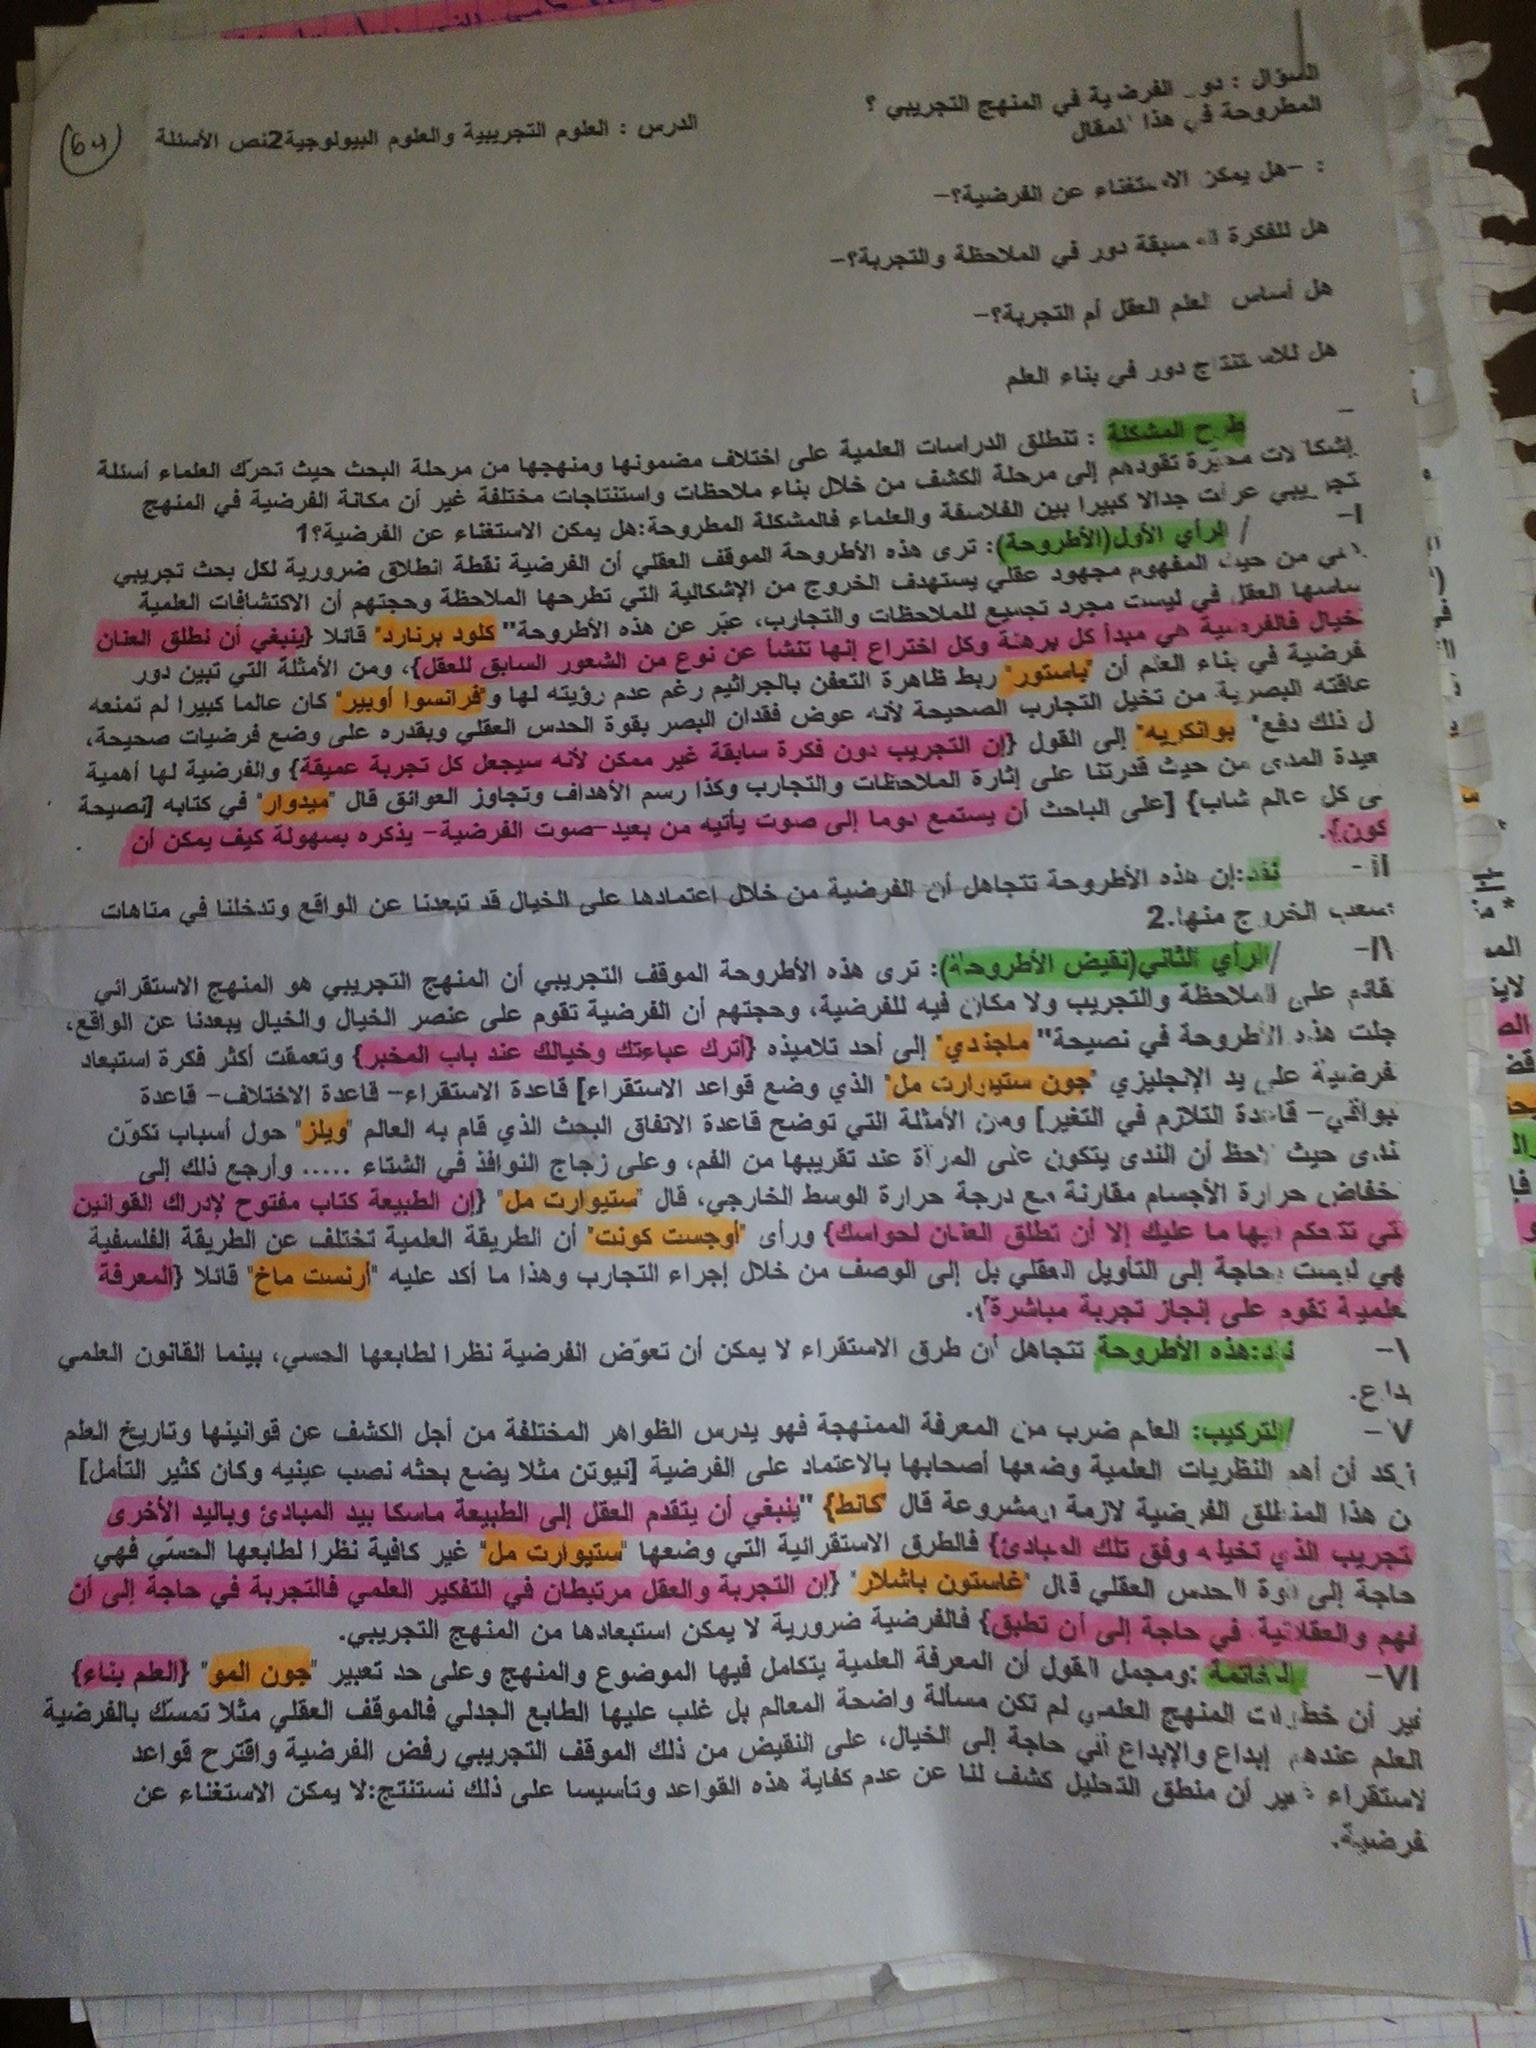 السؤال : دور الفرضية في المنهج التجريبي ؟
الدرس : العلوم التجريبية والعلوم البيولوجية2نص الأسئلة
المطروحة في هذا المقال
: -هل يمكن الاستغناء عن الفرضية؟-
هل للفكرة المسبقة دور في الملاحظة والتجربة؟-
هل أساس العلم العقل أم التجربة؟-
هل للاستنتاج دور في بناء العلم
-
طرح المشكلة : تنطلق الدراسات العلمية على اختلاف مضمونها ومنهجها من مرحلة البحث حيث تحرّك العلماء أسئلة
إشكالات محيّرة تقودهم إلى مرحلة الكشف من خلال بناء ملاحظات واستنتاجات مختلفة غير أن مكانة الفرضية في المنهج
تجريبي عرفت جدالا كبيرا بين الفلاسفة والعلماء فالمشكلة المطروحة:هل يمكن الاستغناء عن الفرضية؟1
I- /الرأي الأول(الأطروحة): ترى هذه الأطروحة الموقف العقلي أن الفرضية نقطة انطلاق ضرورية لكل بحث تجريبي
هي من حيث المفهوم مجهود عقلي يستهدف الخروج من الإشكالية التي تطرحها الملاحظة وحجتهم أن الاكتشافات العلمية
ساسها العقل في ليست مجرد تجميع للملاحظات والتجارب، عبّر عن هذه الأطروحة" كلود برنارد" قائلا {ينبغي أن نطلق العنان
خيال فالفرضية هي مبدأ كل برهنة وكل اختراع إنها تنشأ عن نوع من الشعور السابق للعقل}، ومن الأمثلة التي تبين دور
فرضية في بناء العلم أن "باستور" ربط ظاهرة التعفن بالجراثيم رغم عدم رؤيته لها و"فرانسوا أوبير" كان عالما كبيرا لم تمنعه
عاقته البصرية من تخيل التجارب الصحيحة لأنه عوض فقدان البصر بقوة الحدس العقلي وبقدره على وضع فرضيات صحيحة،
ل ذلك دفع" بوانكريه" إلى القول {إن التجريب دون فكرة سابقة غير ممكن لأنه سيجعل كل تجربة عميقة} والفرضية لها أهمية
عيدة المدى من حيث قدرتنا على إثارة الملاحظات والتجارب وكذا رسم الأهداف وتجاوز العوائق قال "ميدوار" في كتابه [نصيحة
ى كل عالم شاب} [على الباحث أن يستمع دوما إلى صوت يأتيه من بعيد-صوت الفرضية- يذكره بسهولة كيف يمكن أن
كون}.
II- نقد:إن هذه الأطروحة تتجاهل أن الفرضية من خلال اعتمادها على الخيال قد تبعدنا عن الواقع وتدخلنا في متاهات
صعب الخروج منها.2
/الرأي الثاني(نقيض الأطروحة): ترى هذه الأطروحة الموقف التجريبي أن المنهج التجريبي هو المنهج الاستقرائي
قائم على الملاحظة والتجريب ولا مكان فيه للفرضية، وحجتهم أن الفرضية تقوم على عنصر الخيال والخيال يبعدنا عن الواقع،
جلت هذه الأطروحة في نصيحة" ماجندي" إلى أحد تلاميذه {أترك عباءتك وخيالك عند باب المخبر} وتعمقت أكثر فكرة استبعاد
فرضية على يد الإنجليزي "جون ستيوارت مل" الذي وضع قواعد الاستقراء] قاعدة الاستقراء- قاعدة الاختلاف- قاعدة
بواقي- قاعدة التلازم في التغير] ومن الأمثلة التي توضح قاعدة الاتفاق البحث الذي قام به العالم "ويلز" حول أسباب تكوّن
ندى حيث لاحظ أن الندى يتكون على المرآة عند تقريبها من الفم، وعلى زجاج النوافذ في الشتاء ..... وأرجع ذلك إلى
خفاض حرارة الأجسام مقارنة مع درجة حرارة الوسط الخارجي، قال "ستيوارت مل" {إن الطبيعة كتاب مفتوح لإدراك القوانين
تي تتحكم فيها ما عليك إلا أن تطلق العنان لحواسك} ورأى "أوجست كونت" أن الطريقة العلمية تختلف عن الطريقة الفلسفية
هي ليست بحاجة إلى التأويل العقلي بل إلى الوصف من خلال إجراء التجارب وهذا ما أكد عليه "أرنست ماخ" قائلا {المعرفة
علمية تقوم على إنجاز تجربة مباشرة}.
نقد:هذه الأطروحة تتجاهل أن طرق الاستقراء لا يمكن أن تعوّض الفرضية نظرا لطابعها الحسي، بينما القانون العلمي
بداع.
V- /التركيب: العلم ضرب من المعرفة الممنهجة فهو يدرس الظواهر المختلفة من أجل الكشف عن قوانينها وتاريخ العلم
ؤكد أن أهم النظريات العلمية وضعها أصحابها بالاعتماد على الفرضية [نيوتن مثلا يضع بحثه نصب عينيه وكان كثير التأمل]
ن هذا المنطلق الفرضية لازمة ومشروعة قال "كانط} "ينبغي أن يتقدم العقل إلى الطبيعة ماسكا بيد المبادئ وباليد الأخرى
تجريب الذي تخيله وفق تلك المبادئ} فالطرق الاستقرائية التي وضعها "ستيوارت مل" غير كافية نظرا لطابعها الحسّي فهي
حاجة إلى قوة الحدس العقلي قال "غاستون باشلار" {إن التجربة والعقل مرتبطان في التفكير العلمي فالتجربة في حاجة إلى أن
فهم والعقلانية في حاجة إلى أن تطبق} فالفرضية ضرورية لا يمكن استبعادها من المنهج التجريبي.
VI- الخاتمة :ومجمل القول أن المعرفة العلمية يتكامل فيها الموضوع والمنهج وعلى حد تعبير "جون المو" {العلم بناء}
غير أن خطوات المنهج العلمي لم تكن مسألة واضحة المعالم بل غلب عليها الطابع الجدلي فالموقف العقلي مثلا تمسّك بالفرضية
العلم عندهم إبداع والإبداع في حاجة إلى الخيال، على النقيض من ذلك الموقف التجريبي رفض الفرضية واقترح قواعد
لاستقراء غير أن منطق التحليل كشف لنا عن عدم كفاية هذه القواعد وتأسيسا على ذلك نستنتج:لا يمكن الاستغناء عن
فرضية.